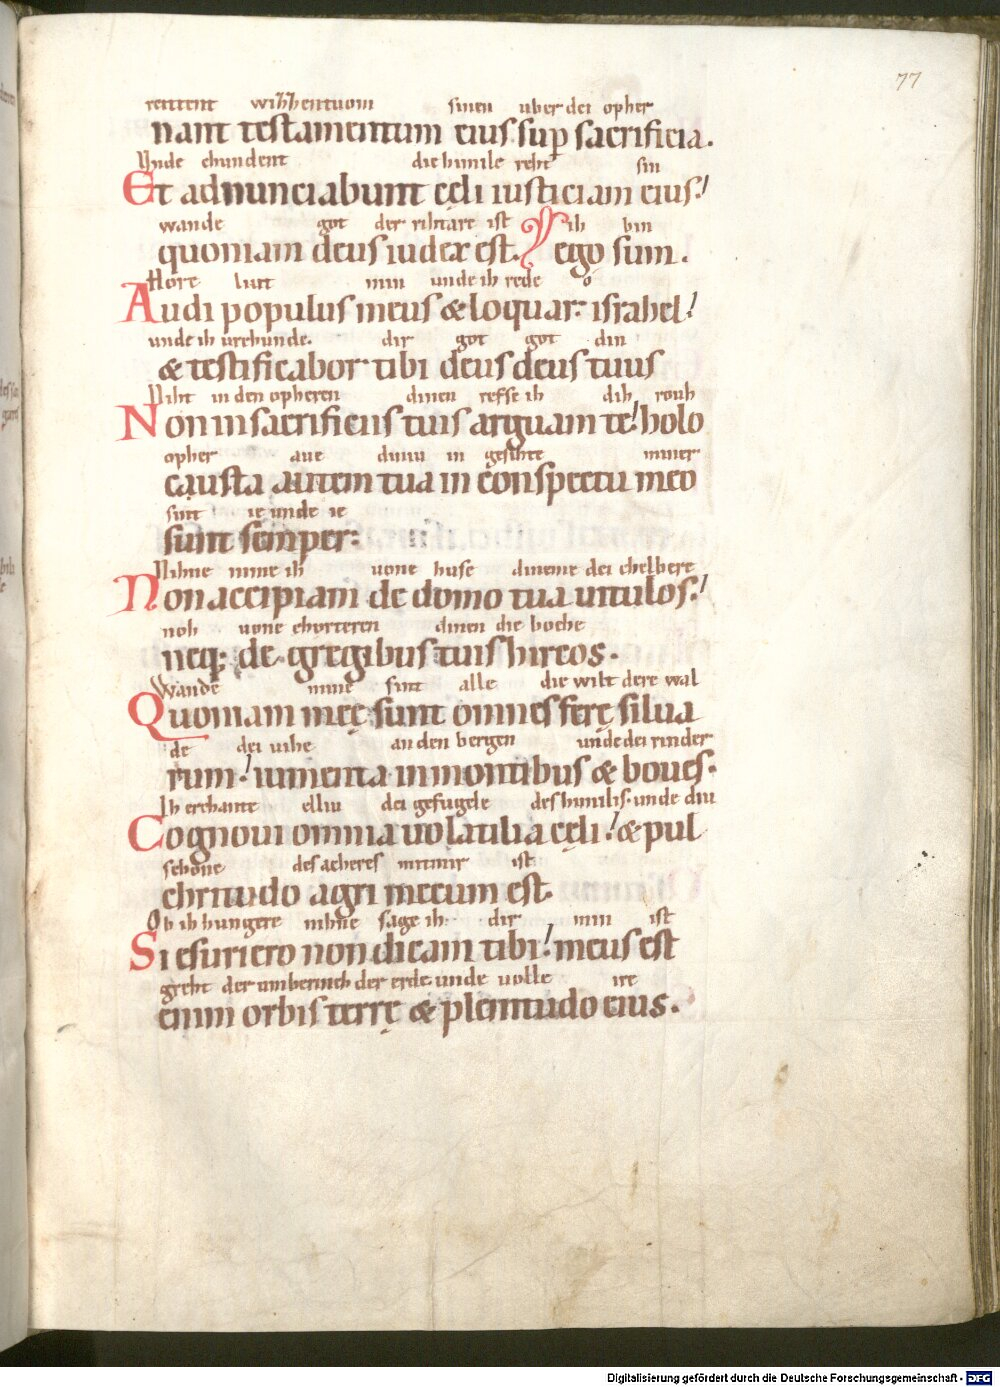 77
rentent wihhentuom sinen uber dei opher
nant testamentum eius sup sacrificia.
Unde chundent die himile reht sin
Et adnunciabunt cęli iusticiam eius!
wande got der rihtare ist ih bin
quoniam deus iudex est. ego sum.
Hore liut min unde ih rede o
Audi populus meus & loquar: israhel!
unde ih urchunde. dir got got din
& testificabor tibi deus deus tuus
Niht in den opheren dinen refse ih dih rouh
Non in sacrificiis tuis arguam te! holo
opher aue diniu in gesihte miner
causta autem tua in conspectu meo
sint ie unde ie
sunt semper:
Nihne nime ih uone huse dineme dei chelbere
Non accipiam de domo tua uitulos!
noh uone chorteren dinen die boche
neq; de gregibus tuis hircos.
Wande mine sint alle die wilt dere wal
Quoniam meę sunt omnes ferę silua
de dei uihe an den bergen unde dei rinder
rum! iumenta in montibus & boues.
Ih erchante elliu dei gefugele des himilis. unde diu
Cognoui omnia uolatilia cęli! & pul
schone des acheres mitmir ist
chritudo agri mecum est.
Ob ih hungere nihne sage ih dir min ist
Si esuriero non dicam tibi! meus est
greht der umberinch der erde. unde uolle ire
enim orbis terrę & plenitudo eius.
Digitalisierung gefördert durch die Deutsche Forschungsgemeinschaft - DFG